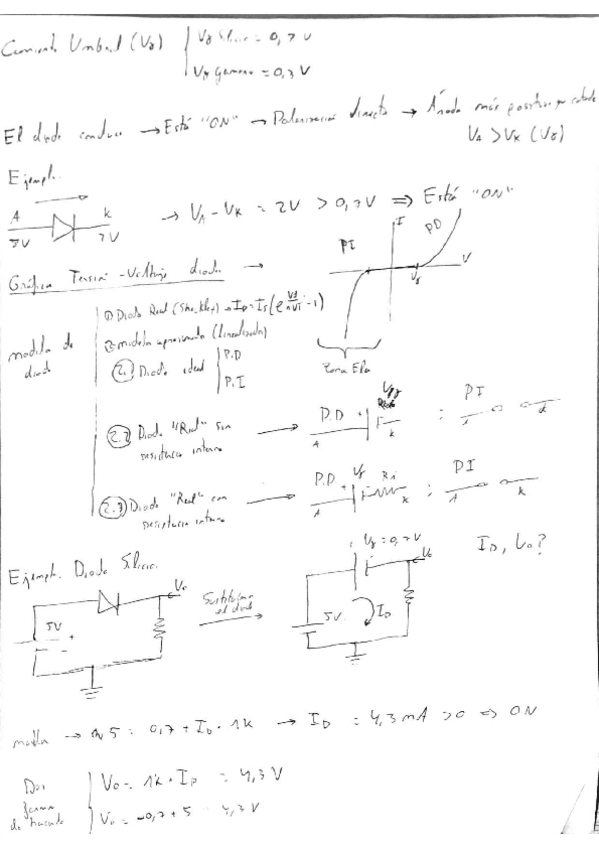 Umbral (Vγ) { Vγ Silicio = 0,7 V
Vγ Germanio = 0,3 V
El diodo conduce → Está "ON" → Polarización directa → Ánodo más positivo que cátodo
VA > VK (Vγ)
Ejemplo.
A k
5V 3V
→ VA - VK = 2V > 0,7V ⇒ Está "ON"
I
PI PD
V
Vγ
Gráfica Tensión - Voltaje diodo →
modelo de
diodo
① Diodo Real (Shockley) → ID = IS (e^(Vd/nVT) - 1)
② modelo aproximado (linealizado)
2.1 Diodo ideal { P.D
P.I
Zona
2.2 Diodo "Real" sin
resistencia interna
→ P.D Vγ A k ; PI A k
2.3 Diodo "Real" con
resistencia interna
→ P.D Vγ Ri A k ; PI A k
Ejemplo. Diodo Silicio.
Vo
5V
Sustituimos
el diodo
Vγ = 0,7V
Vo
5V
ID
ID, Vo?
malla → 5 = 0,7 + ID · 1k → ID = 4,3 mA > 0 ⇒ ON
Dos
formas
de hacerlo
{ Vo = 1k · ID = 4,3 V
Vo = -0,7 + 5 = 4,3 V